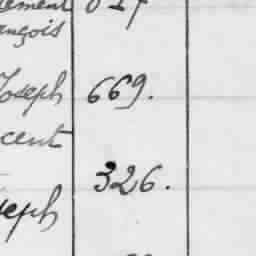 ement
ançois
Joseph 669.
cent
326.
seph